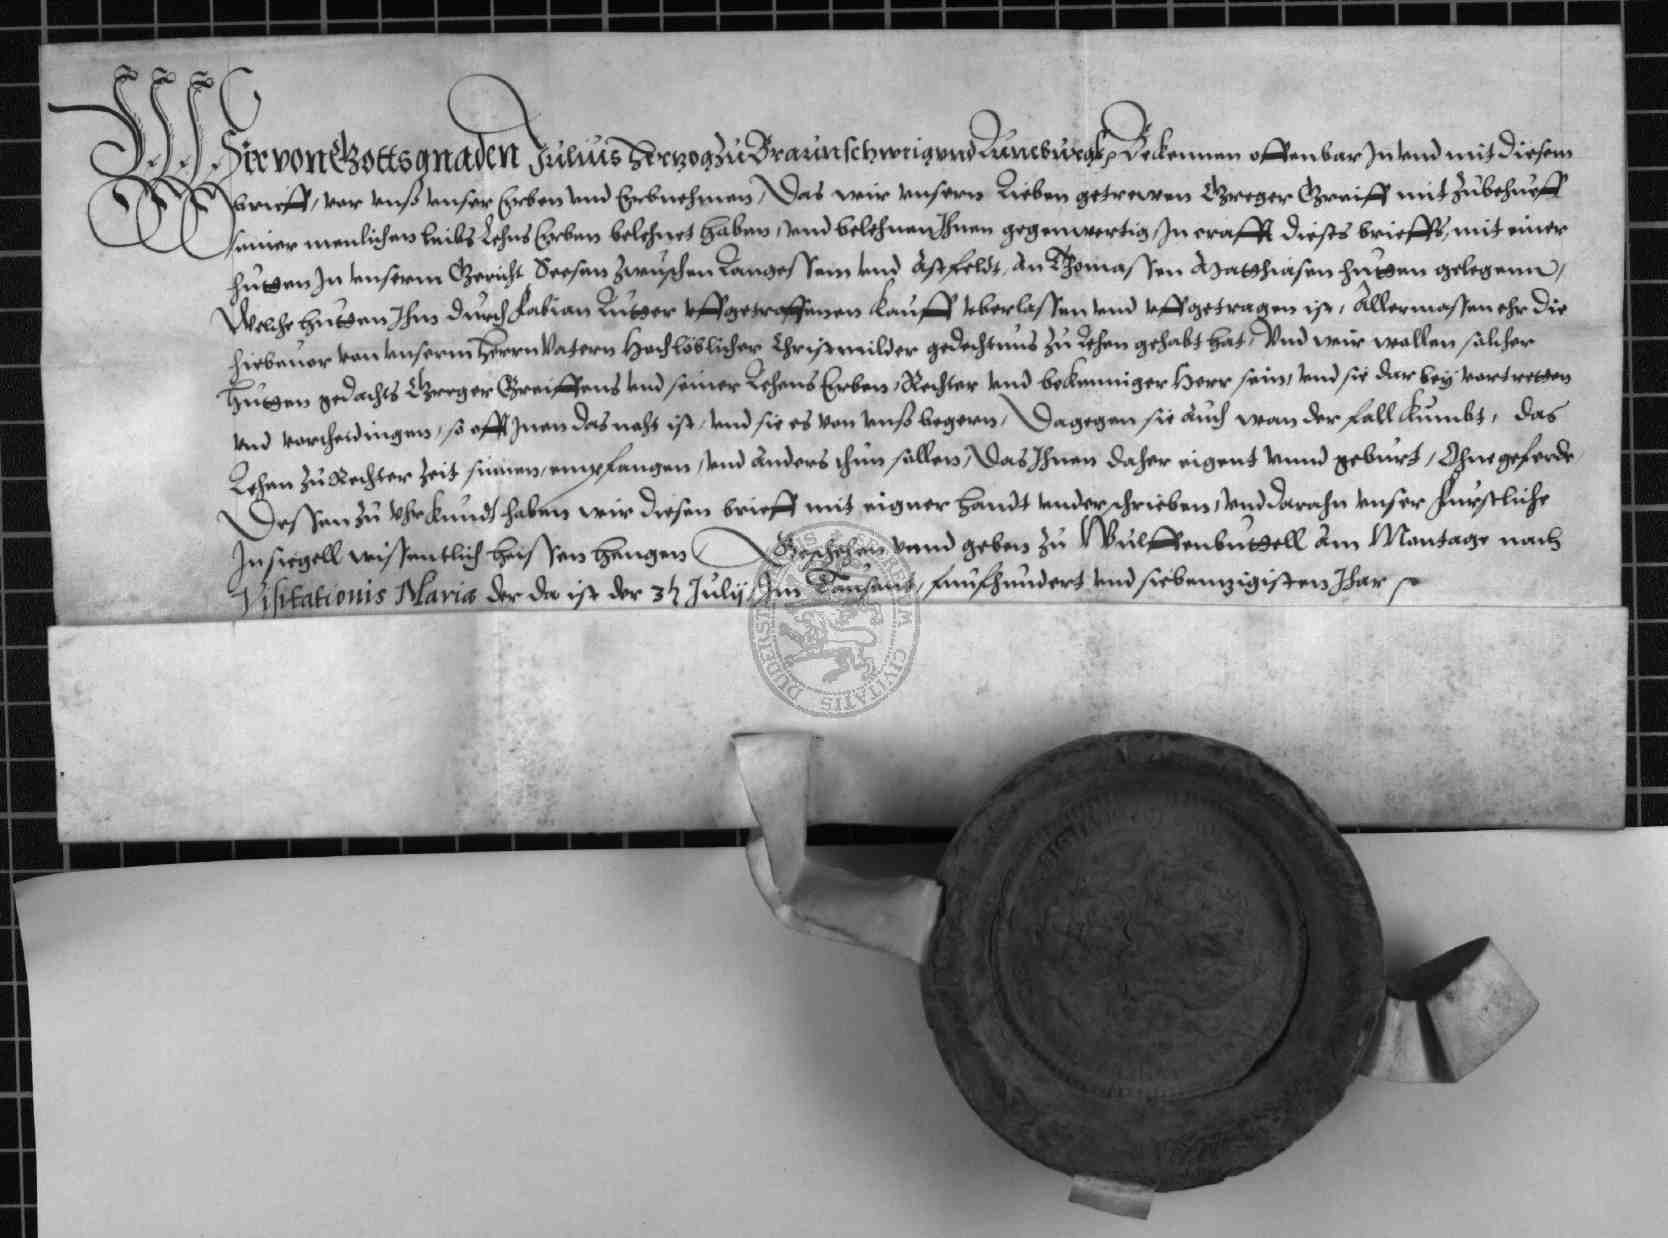 Wir von Gotts gnaden Julius Hertzog zu Braunschweig und Luneburgk p Bekennen offenbar In und mit diesem
brieff, vor unß unser Erben und Erbnehmen, Das wir unsern Lieben getrewen Greger Greiff mit zubehueff
seiner menlichen leibs Lehns Erben belehnet haben, und belehnen Ihnen gegenwertig, In crafft dieses brieffs, mit einer
hutten In unserm Gericht Seesen zwuschen Langeßem und Astfeldt, An Thomaßen Matthiasen hutten gelegenn,
Welche hutten Ihm durch Fabian Lutter uffgetroffenen Kauff uberlaßen und uffgetragen ist, Allermaßen ehr die
hiebeuor von unserm Herrn Vatern Hochlöblicher Christmilder gedechtnus zu Lehen gehabt hat, Und wir wollen solcher
hutten gedachts Greger Greiffens und seiner Lehens Erben, Rechter und bekenniger Herr sein, und sie darbey vortretten
und vorteidingen, so offt Inen das noht ist, und sie es von unß begern, Dagegen sie Auch wan der fall Kumbt, das
Lehen zu Rechter zeit sinnen, empfangen, und Anders thun sollen, Das Ihnen daher eigent unnd geburt, Ohne geferde,
Deßen zu Uhrkundt haben wir diesen brieff mit eigner handt underschrieben, und darahn unser Furstliche
Insiegell wißentlich heißen hangen Geschehen unnd geben zu Wulffenbuttell Am Montage nach
Visitationis Mariæ der da ist der 3t Julij, Im Tausent, funfhundert und siebenzigisten Ihar p
CIVITATIS